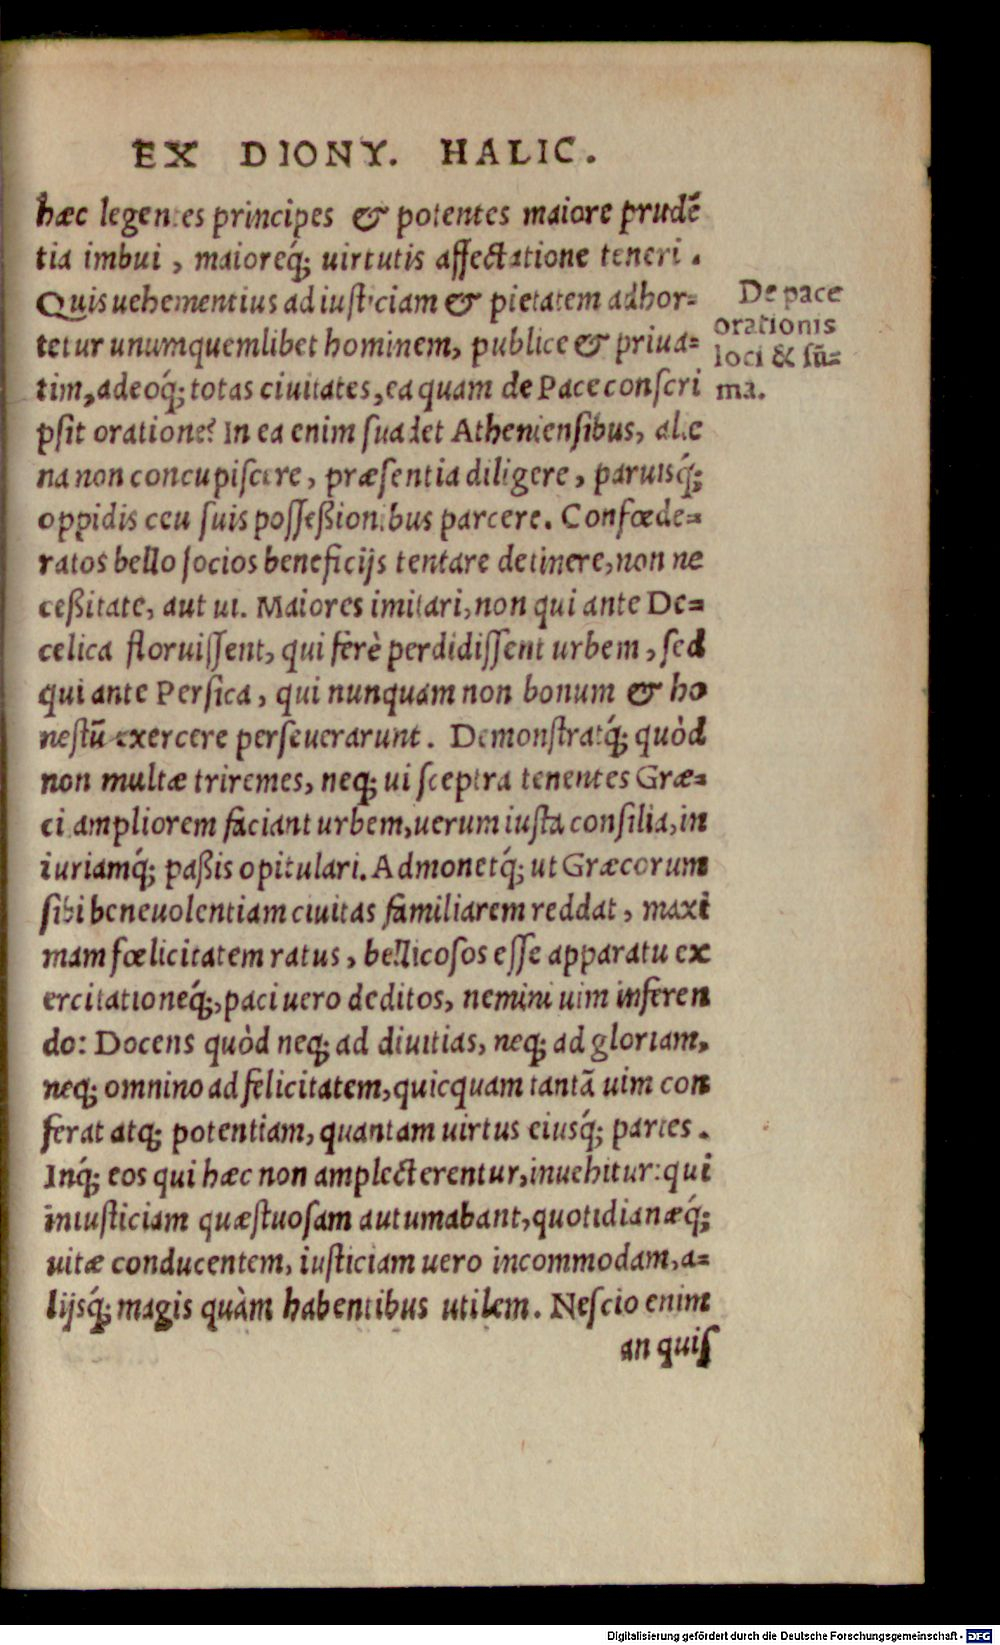 EX DIONY. HALIC.
hæc legentes principes & potentes maiore prudẽ
tia imbui, maioreq́; uirtutis affectatione teneri.
Quis uehementius ad iusticiam & pietatem adhor=
tetur unumquemlibet hominem, publice & priua=
tim, adeoq́; totas ciuitates, ea quam de Pace conscri
psit oratione? In ea enim suadet Atheniensibus, alie
na non concupiscere, præsentia diligere, paruisq́;
oppidis ceu suis possessionibus parcere. Confœde=
ratos bello socios beneficijs tentare detinere, non ne
ceßitate, aut ui. Maiores imitari, non qui ante De=
celica floruissent, qui ferè perdidissent urbem, sed
qui ante Persica, qui nunquam non bonum & ho
nestũ exercere perseuerarunt. Demonstratq́; quòd
non multæ triremes, neq; ui sceptra tenentes Græ=
ci ampliorem faciant urbem, uerum iusta consilia, in
iuriamq́; paßis opitulari. Admonetq́; ut Græcorum
sibi beneuolentiam ciuitas familiarem reddat, maxi
mam fœlicitatem ratus, bellicosos esse apparatu ex
ercitationeq́;, paci uero deditos, nemini uim inferen
do: Docens quòd neq; ad diuitias, neq; ad gloriam,
neq; omnino ad felicitatem, quicquam tantã uim con
ferat atq; potentiam, quantam uirtus eiusq́; partes.
Inq́; eos qui hæc non amplecterentur, inuehitur: qui
iniusticiam quæstuosam autumabant, quotidianæq́;
uitæ conducentem, iusticiam uero incommodam, a=
lijsq́; magis quàm habentibus utilem. Nescio enim
an quis
De pace
orationis
loci & sũ=
ma.
Digitalisierung gefördert durch die Deutsche Forschungsgemeinschaft - DFG